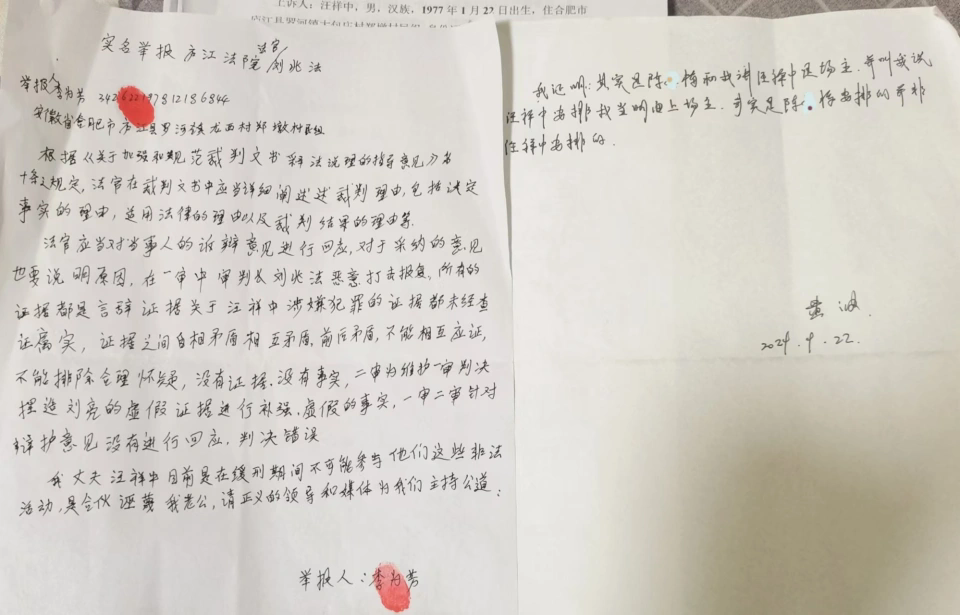 上诉人：汪祥中，男，汉族，1977年1月22日出生，住合肥市
实名举报庐江法院法官刘兆法
举报人李为芳
安徽省合肥市庐江县罗河镇龙西村郑墩村民组
根据《关于加强和规范裁判文书释法说理的指导意见》第
十条规定，法官在裁判文书中应当详细阐述述裁判理由，包括认定
事实的理由，适用法律的理由以及裁判结果的理由等．
法官应当对当事人的诉辩意见进行回应，对于采纳的意见
也要说明原因，在一审中审判长刘兆法恶意打击报复，所有的
证据都是言辞证据关于汪祥中涉嫌犯罪的证据都未经查
证属实，证据之间自相矛盾相互矛盾、前后矛盾，不能相互应证，
不能排除合理怀疑，没有证据、没有事实，二审为维护一审判决
捏造刘亮的虚假证据进行补强、虚假的事实，一审二审针对
辩护意见没有进行回应，判决错误
我丈夫汪祥中目前是在缓刑期间不可能参与他们这些非法
活动，是合伙诬蔑我老公，请正义的领导和媒体为我们主持公道：
举报人：李为芳
我证明：其实是陈 梅和我讲汪祥中是场主．并叫我说
汪祥中安排我当明面上场主．事实是陈 梅安排的并非
汪祥中安排的．
2024．9．22．